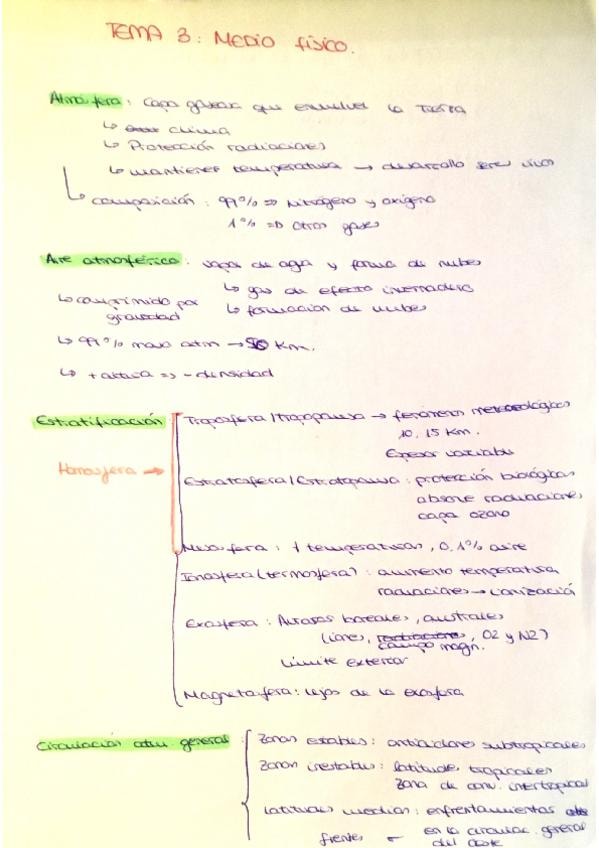 TEMA 3: MEDIO físico.
Atmósfera: capa gaseosa que envuelve la Tierra
↳ clima
↳ Protección radiaciones
↳ mantener temperatura → desarrollo seres vivos
↳ composición: 99% => Nitrógeno y oxígeno
1% => Otros gases
Aire atmosférico: vapor de agua y forma de nubes
↳ comprimido por gravedad
↳ gas de efecto invernadero
↳ formación de nubes
↳ 99% masa atm → 50 Km.
↳ + altura => - densidad
Estratificación:
Homosfera →
Troposfera/tropopausa → fenómenos meteorológicos
10, 15 Km.
Espesor variable
Estratosfera/Estratopausa: protección biológica
absorve radiaciones
capa ozono
Mesosfera: + temperaturas, 0,1% aire
Ionosfera (termosfera): aumento temperatura
radiaciones → ionización
Exosfera: Auroras boreales, australes
(iones, campo magn., O2 y N2)
Límite exterior
Magnetosfera: lejos de la exosfera
Circulación atm. general:
Zonas estables: anticiclones subtropicales
Zonas inestables: latitudes tropicales
Zona de conv. intertropical
latitudes medias: enfrentamientos
frentes ← en la circulac. general
del oeste